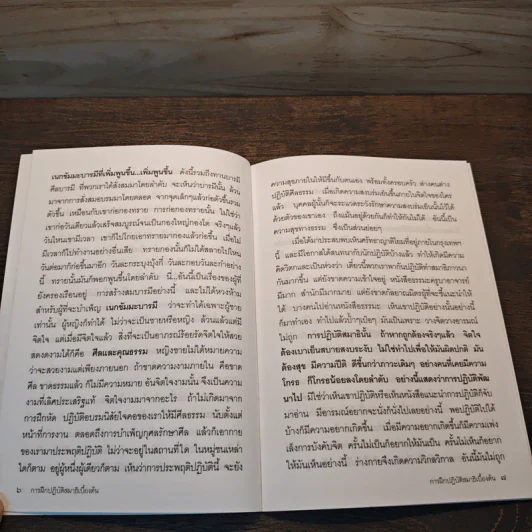 เนกขัมมะบารมีที่เพิ่มพูนขึ้น...เพิ่มพูนขึ้น ดังนี้รวมถึงทานบารมี
ศีลบารมี ที่พวกเราได้สั่งสมมาโดยลำดับ จะเห็นว่าบารมีนั้น ล้วน
มาจากการสั่งสมอบรมมาโดยตลอด จากจุดเล็กๆแล้วก่อตัวขึ้นรวม
ตัวขึ้น เหมือนกับเขาก่อกองทราย การก่อกองทรายนั้น ไม่ใช่ว่า
เขาก่อวันเดียวแล้วเสร็จสมบูรณ์จนเป็นกองใหญ่กองโต จริงๆแล้ว
วันไหนเขามีเวลา เขาก็ไปโกยเอาทรายมากองแล้วก่อขึ้น เมื่อไม่
มีเวลาก็ไปทำงานอย่างอื่นเสีย ทรายกองนั้นก็ไม่ได้สลายไปไหน
วันต่อมาก็ก่อขึ้นมาอีก วันละกระบุงบุ้งกี๋ วันละกอบวันละกำอย่าง
นี้ ทรายนั้นมันก็พอกพูนขึ้นโดยลำดับ นี่...อันนี้เป็นเรื่องของผู้ที่
ยังครองเรือนอยู่ การสร้างสมบารมีอย่างนี้ และไม่ได้หวงห้าม
สำหรับผู้ที่จะบำเพ็ญ เนกขัมมะบารมี ว่าจะทำได้เฉพาะผู้ชาย
เท่านั้น ผู้หญิงก็ทำได้ ไม่ว่าจะเป็นชายหรือหญิง ล้วนแล้วแต่มี
จิตใจ แต่เมื่อมีจิตใจแล้ว สิ่งที่จะเป็นอาภรณ์ร้อยรัดจิตใจให้สวย
สดงดงามได้ก็คือ ศีลและคุณธรรม หญิงชายไม่ได้หมายความ
ว่าจะสวยงามแต่เพียงภายนอก ถ้าขาดความงามภายใน คือขาด
ศีล ขาดธรรมแล้ว ก็ไม่มีความหมาย อันจิตใจงามนั้น จึงเป็นความ
งามที่เลิศประเสริฐแท้ จิตใจงามมาจากอะไร ถ้าไม่ได้มาจาก
การฝึกหัด ปฏิบัติอบรมนิสัยใจคอของเราให้มีศีลธรรม นับตั้งแต่
หน้าที่การงาน ตลอดถึงการบำเพ็ญกุศลรักษาศีล แล้วก็เอากาย
ของเรามาประพฤติปฏิบัติ ไม่ว่าจะอยู่ในสถานที่ใด ในหมู่ชนเหล่า
ใดก็ตาม อยู่ผู้หนึ่งผู้เดียวก็ตาม เห็นว่าการประพฤติปฏิบัตินี้ จะยัง
๖ การฝึกปฏิบัติสมาธิเบื้องต้น
ความสุขภายในให้มีขึ้นกับตนเอง พร้อมทั้งครอบครัว ต่างคนต่าง
ปฏิบัติศีลธรรม เมื่อเกิดความสงบร่มเย็นขึ้นภายในจิตใจของใคร
แล้ว บุคคลผู้นั้นก็จะระงับทุกข์รักษาความสงบร่มเย็นนี้ไว้ได้
ด้วยตัวของเขาเอง ถึงแม้นอยู่ด้วยกันก็ทำให้กันไม่ได้ อันนี้เป็น
ความสุขทางธรรม ซึ่งเป็นส่วนย่อยๆ
เมื่อได้มาประสบพบเห็นศรัทธาญาติโยมที่อยู่ภายในกรุงเทพฯ
นี้ และมีโอกาสได้สนทนากับนักปฏิบัติบ้างแล้ว ทำให้เกิดมีความ
คิดวิตกและเป็นห่วงว่า เดี๋ยวนี้พวกเราพากันปฏิบัติทำสมาธิภาวนา
กันมากขึ้น แต่ยังขาดความเข้าใจอยู่ หนังสือธรรมะครูบาอาจารย์
มีมาก สำนักมีมากมาย แต่ยังขาดกัลยาณมิตรผู้ที่จะชี้แนะนำให้
ได้ บางคนไปอ่านหนังสือธรรมะ เห็นเขาปฏิบัติอย่างนั้นอย่างนี้
ก็มาทำเอง ทำไปแล้วเบ๊าะเบ๊อๆ มันเป็นเพราะ วางจิตวางอารมณ์
ไม่ถูก การปฏิบัติสมาธินั้น ถ้าหากถูกต้องจริงๆแล้ว จิตใจ
ต้องเบาเย็นสบายสงบระงับ ไม่ใช่ทำไปเพื่อให้มันผิดปกติ มัน
ต้องสุข มีความปีติ ดีขึ้นกว่าภาวะเดิมๆ อย่างคนที่เคยมีความ
โกรธ ก็โกรธน้อยลงโดยลำดับ อย่างนี้แสดงว่าการปฏิบัติพัฒ
นาไป มิใช่ว่าเห็นเขาปฏิบัติหรือเห็นหนังสือแนะนำการปฏิบัติก็จับ
มาอ่าน มีอารมณ์อยากจะนั่งก็นั่งไปเลยอย่างนี้ พอปฏิบัติไปได้
บ้างก็มีความอยากเกิดขึ้น เมื่อมีความอยากเกิดขึ้นก็มีความเพ่ง
เล็งการบังคับจิต ครั้นไม่เป็นก็อยากให้มันเป็น ครั้นไม่เห็นก็อยาก
ให้มันเห็นอย่างนี้ ร่างกายจึงเกิดความวิกลวิกาล อันนี้มันไม่ถูก
การฝึกปฏิบัติสมาธิเบื้องต้น ๗